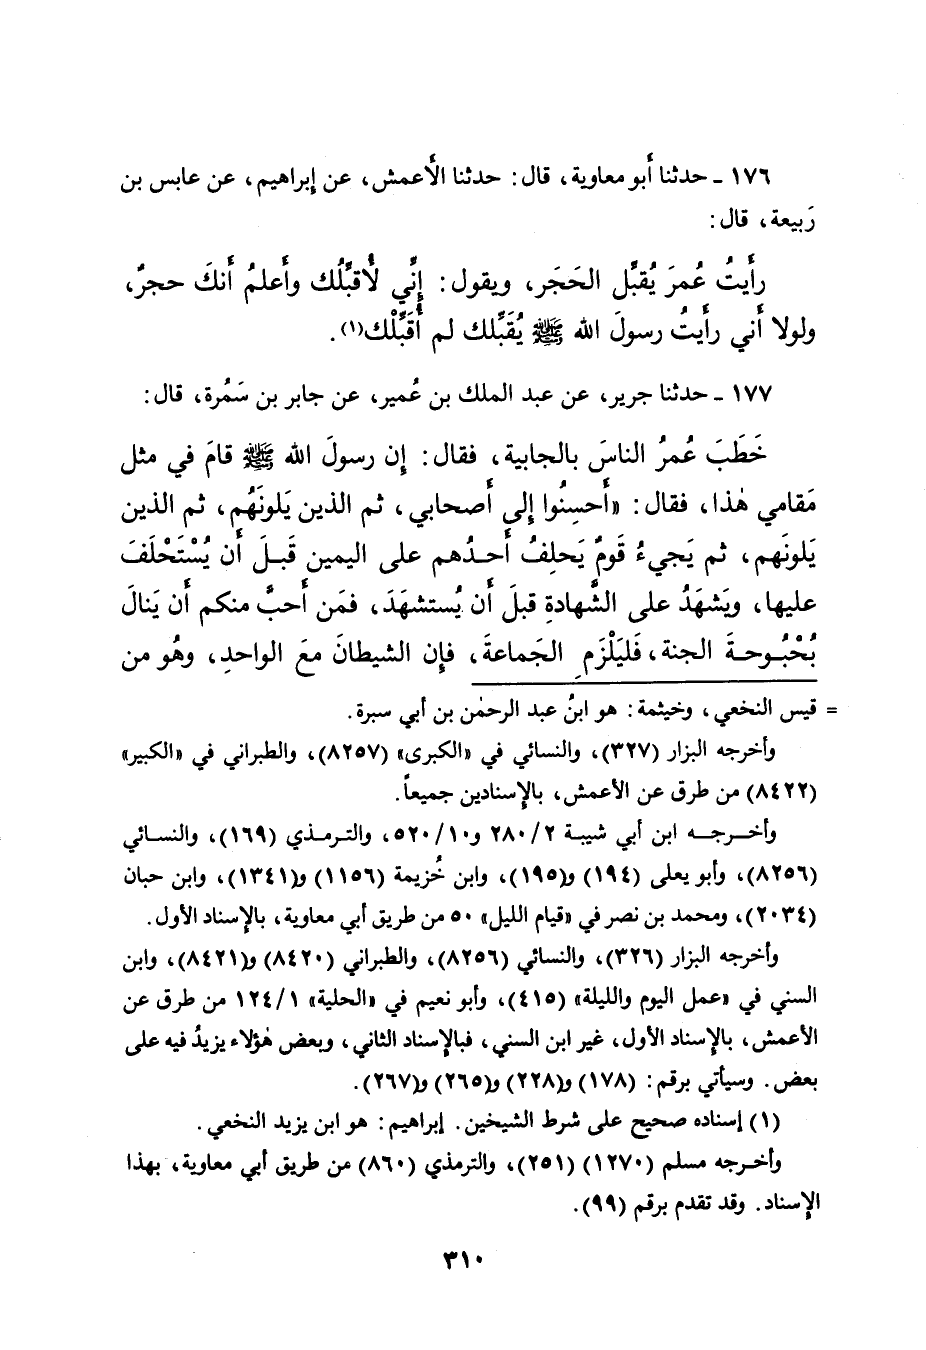 ١٧٦ ـ حدثنا أَبو معاوية، قال: حدثنا الأَعمش، عن إبراهيم، عن عابس بن
رَبيعة، قال:
رأَيتُ عُمرَ يُقبِّل الحَجَر، ويقول: إِنِّي لأُقبِّلُك وأَعلمُ أَنكَ حجرٌ،
ولولا أَني رأَيتُ رسولَ الله ﷺ يُقَبِّلك لم أُقَبِّلْك(١).
١٧٧ ـ حدثنا جرير، عن عبد الملك بن عُمير، عن جابر بن سَمُرة، قال:
خَطَبَ عُمرُ الناسَ بالجابية، فقال: إن رسولَ الله ﷺ قامَ في مثل
مَقامي هٰذا، فقال: «أَحسِنُوا إلى أَصحابي، ثم الذين يَلونَهُم، ثم الذين
يَلونَهم، ثم يَجيءُ قَومٌ يَحلِفُ أَحدُهم على اليمين قَبلَ أَن يُسْتَحْلَفَ
عليها، ويَشهَدُ على الشَّهادةِ قبلَ أَن يُستشهَدَ، فمَن أَحبَّ منكم أَن يَنالَ
بُحْبُوحةَ الجنة، فَليَلْزَمِ الجَماعةَ، فإن الشيطانَ معَ الواحدِ، وهُو من
= قيس النخعي، وخيثمة: هو ابنُ عبد الرحمٰن بن أبي سبرة.
وأخرجه البزار (٣٢٧)، والنسائي في «الكبرى» (٨٢٥٧)، والطبراني في «الكبير»
(٨٤٢٢) من طرق عن الأعمش، بالإسنادين جميعاً.
وأخرجه ابن أبي شيبة ٢/ ٢٨٠ و١٠/ ٥٢٠، والترمذي (١٦٩)، والنسائي
(٨٢٥٦)، وأبو يعلى (١٩٤) و(١٩٥)، وابن خُزيمة (١١٥٦) و(١٣٤١)، وابن حبان
(٢٠٣٤)، ومحمد بن نصر في «قيام الليل» ٥٠ من طريق أبي معاوية، بالإسناد الأول.
وأخرجه البزار (٣٢٦)، والنسائي (٨٢٥٦)، والطبراني (٨٤٢٠) و(٨٤٢١)، وابن
السني في «عمل اليوم والليلة» (٤١٥)، وأبو نعيم في «الحلية» ١/ ١٢٤ من طرق عن
الأعمش، بالإسناد الأول، غير ابن السني، فبالإسناد الثاني، وبعض هٰؤلاء يزيدُ فيه على
بعض. وسيأتي برقم: (١٧٨) و(٢٢٨) و(٢٦٥) و(٢٦٧).
(١) إسناده صحيح على شرط الشيخين. إبراهيم: هو ابن يزيد النخعي.
وأخرجه مسلم (١٢٧٠) (٢٥١)، والترمذي (٨٦٠) من طريق أبي معاوية، بهذا
الإسناد. وقد تقدم برقم (٩٩).
٣١٠